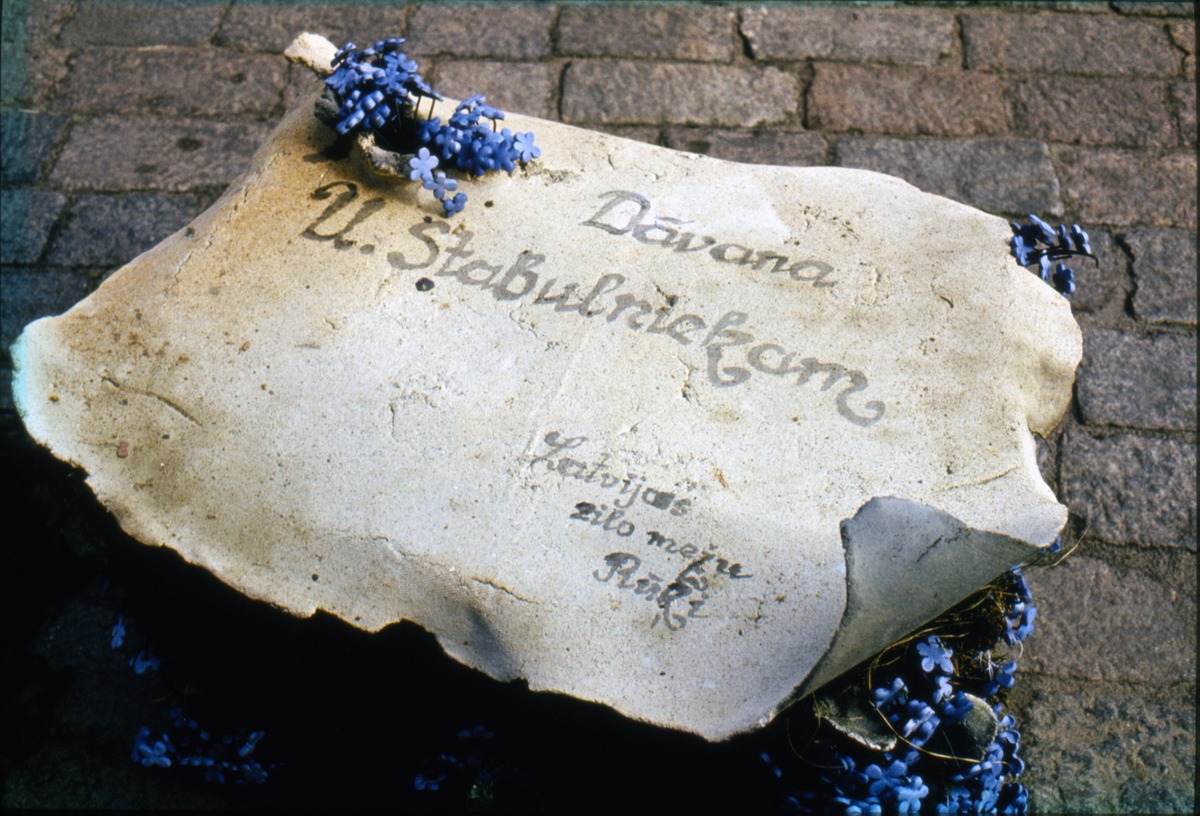 Dāvana
U. Stabulniekam
Latvijas
zilo meļu
Rūķi